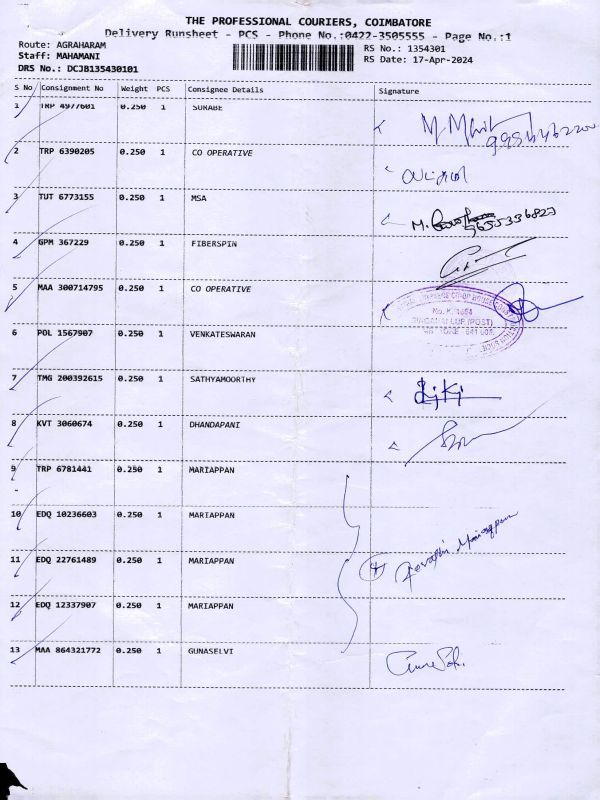 THE PROFESSIONAL COURIERS, COIMBATORE
Delivery Runsheet - PCS - Phone No.:0422-3505555 - Page No.:1
Route: AGRAHARAM
RS No.: 1354301
Staff: MAHAMANI
RS Date: 17-Apr-2024
DRS No.: DCJB135430101
S No Consignment No Weight PCS Consignee Details Signature
1 TRP 4977601 0.250 1 SURABE
2 TRP 6390205 0.250 1 CO OPERATIVE
3 TUT 6773155 0.250 1 MSA
M. 9655336823
4 GPM 367229 0.250 1 FIBERSPIN
5 MAA 300714795 0.250 1 CO OPERATIVE
6 POL 1567907 0.250 1 VENKATESWARAN
7 TMG 200392615 0.250 1 SATHYAMOORTHY
8 KVT 3060674 0.250 1 DHANDAPANI
9 TRP 6781441 0.250 1 MARIAPPAN
10 EDQ 10236603 0.250 1 MARIAPPAN
11 EDQ 22761489 0.250 1 MARIAPPAN
12 EDQ 12337907 0.250 1 MARIAPPAN
13 MAA 864321772 0.250 1 GUNASELVI